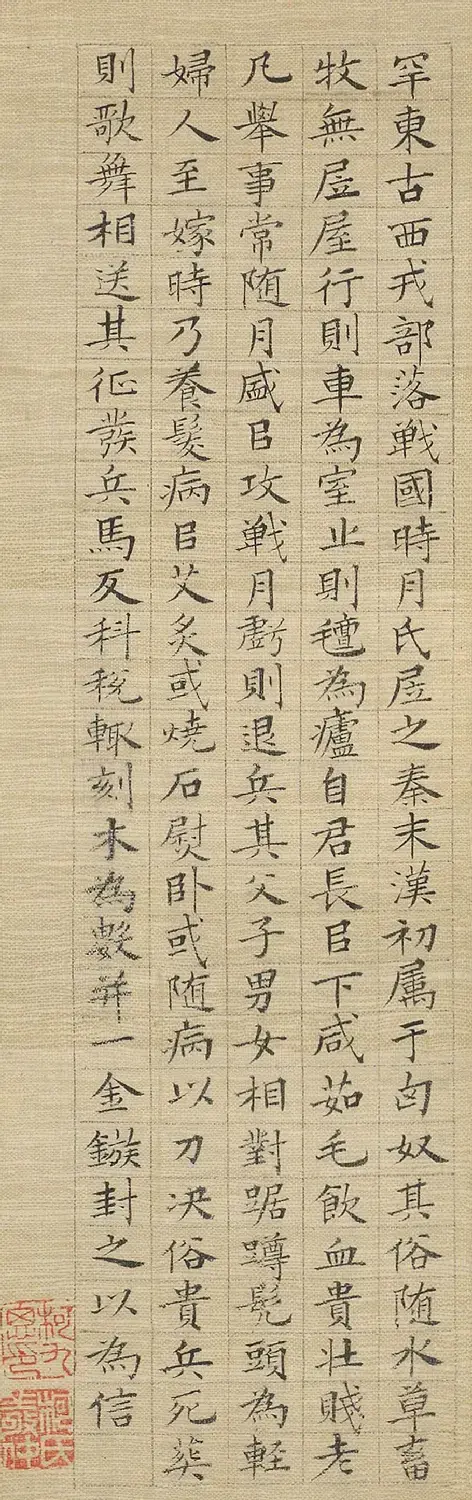 罕東古西戎部落戦國時月氏居之秦末漢初属于匈奴其俗随水草畜
牧無居屋行則車為室止則氊為廬自君長㠯下咸茹毛飲血貴壮賤老
凡舉事常随月盛㠯攻戦月虧則退兵其父子男女相對踞蹲髡頭為軽
婦人至嫁時乃養髮病㠯艾炙或燒石熨卧或随病以刀决俗貴兵死葬
則歌舞相送其征發兵馬及科稅輙刻木為數并一金鏃封之以為信